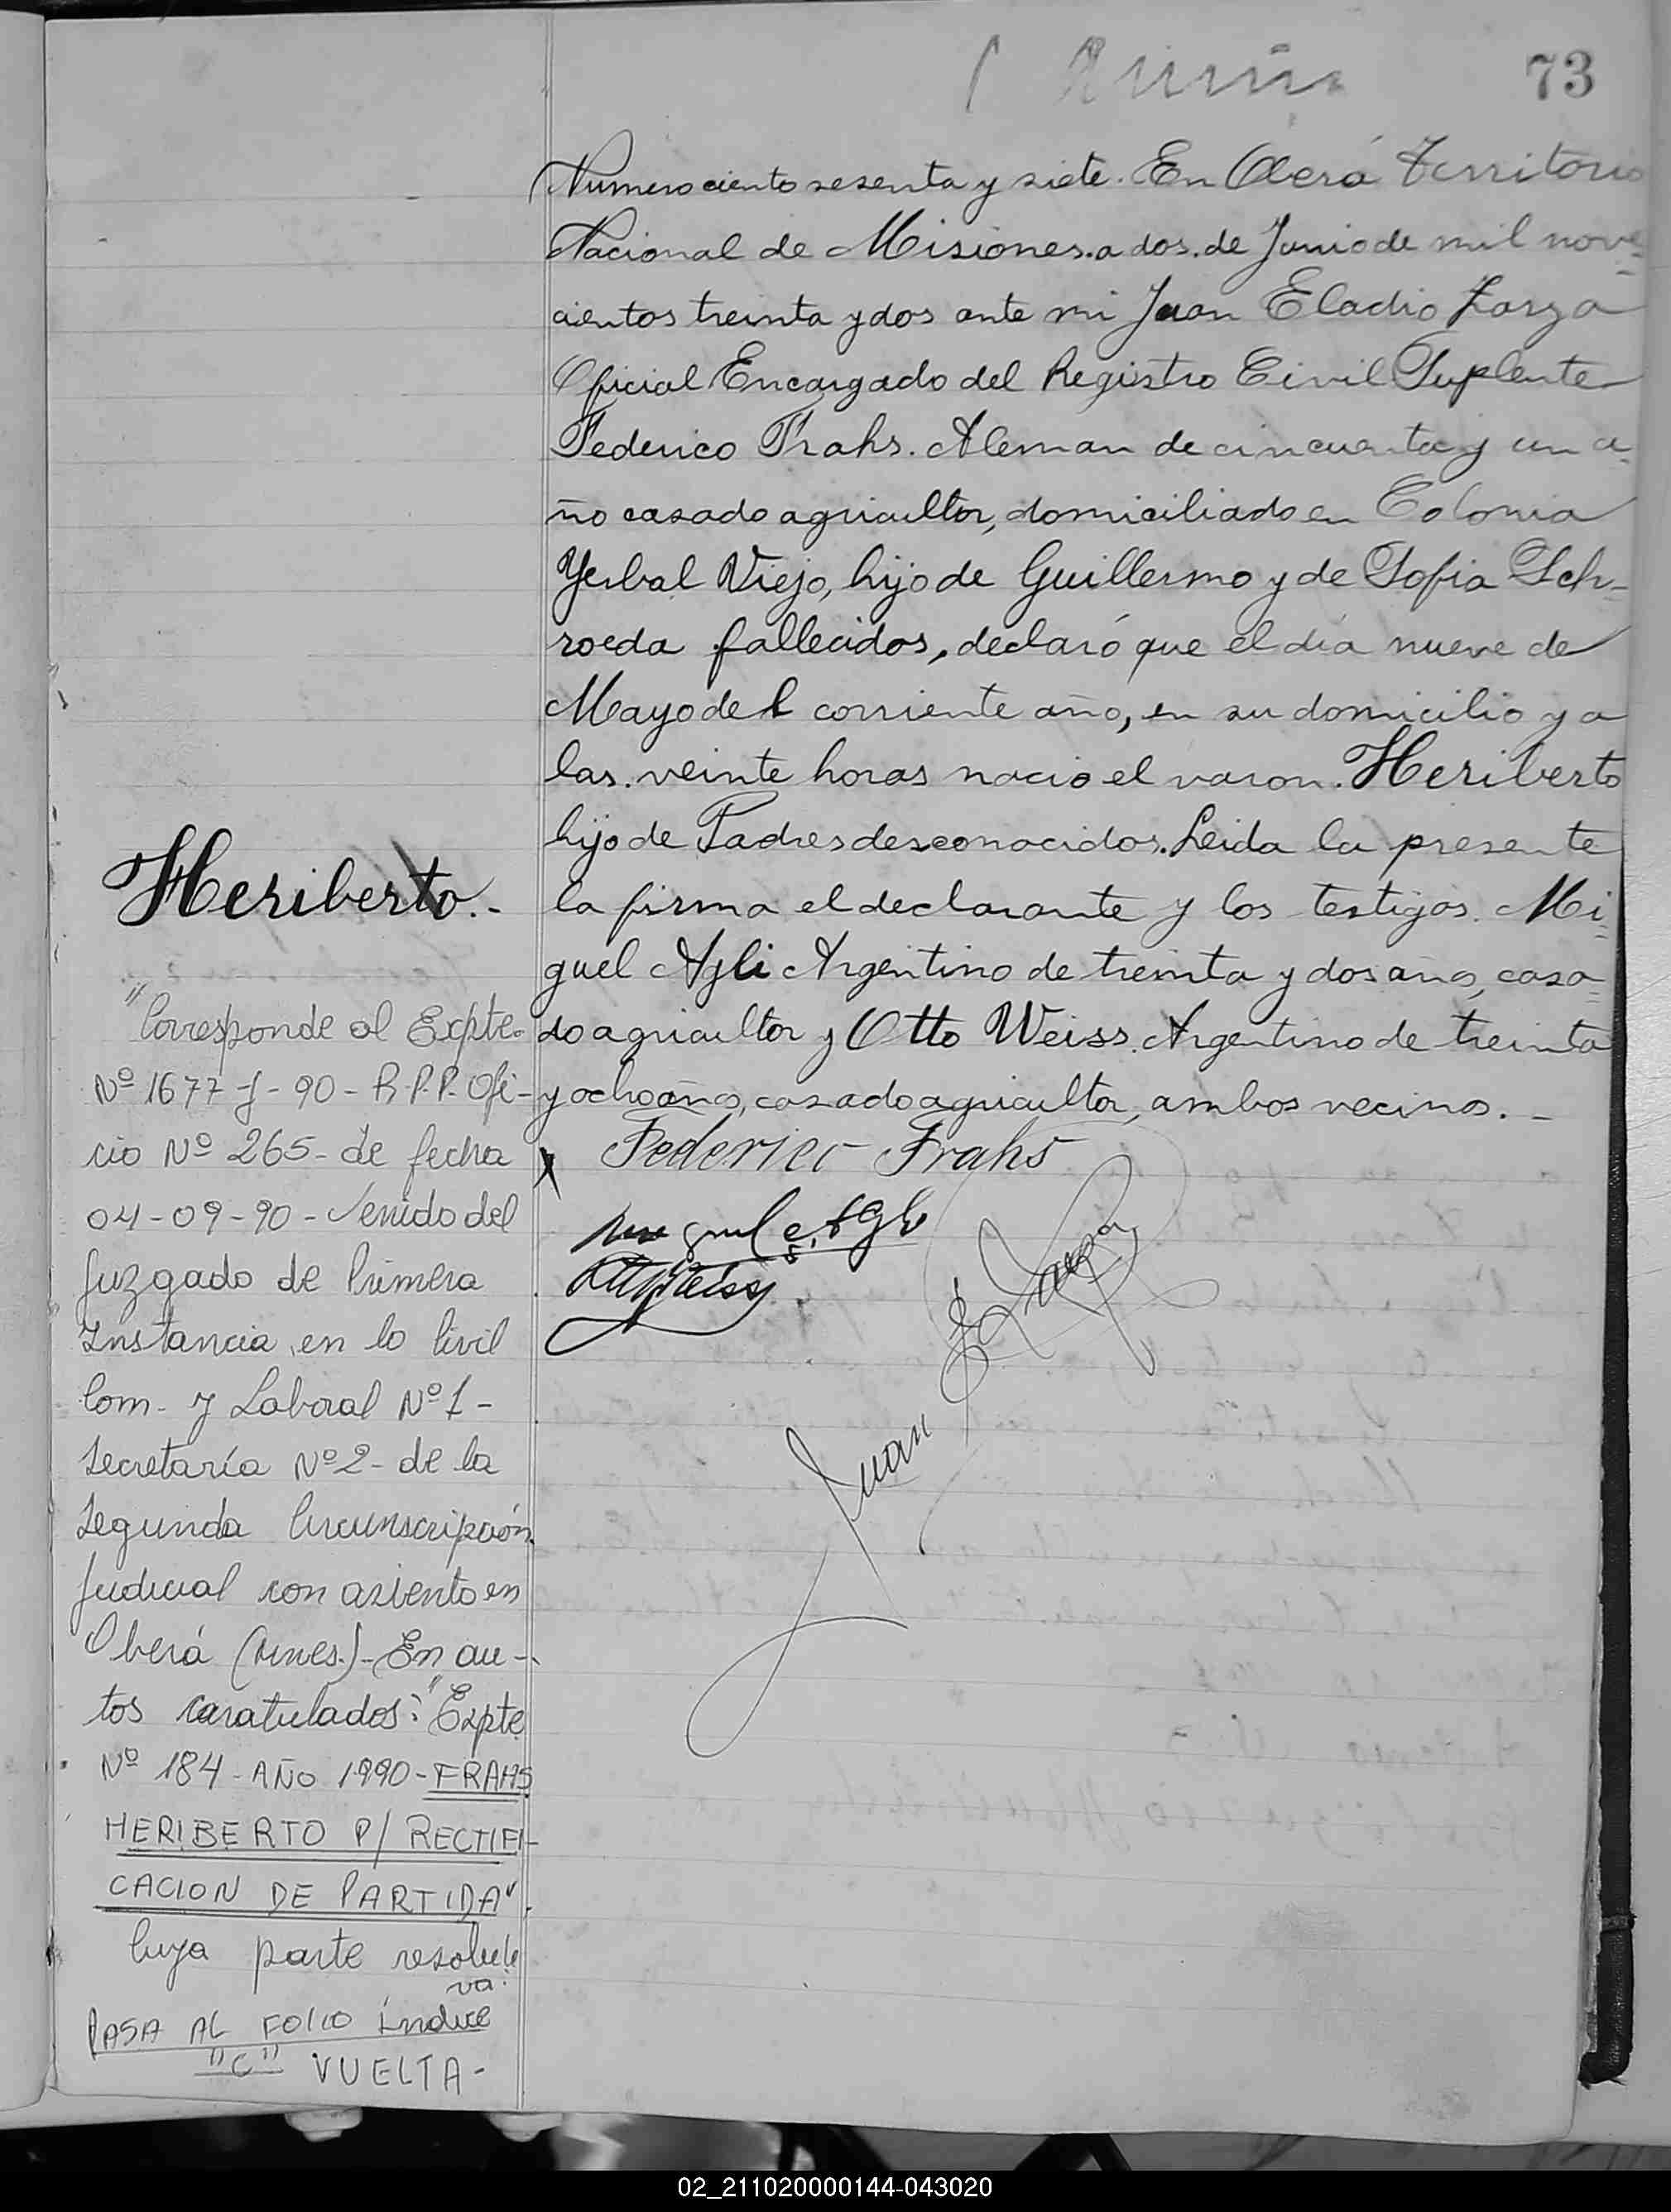 73
Numero ciento sesenta y siete. En Oberá Territorio
Nacional de Misiones. a dos. de Junio de mil nove=
cientos treinta y dos ante mi Juan Eladio Zarza
Oficial Encargado del Registro Civil Suplente
Federico Frahs. Aleman de cincuenta y un a=
ño casado agricultor, domiciliado en Colonia
Yerbal Viejo, hijo de Guillermo y de Sofia Sch=
roeda fallecidos, declaró que el día nueve de
Mayo del corriente año, en su domicilio y a
las. veinte horas nacio el varon. Heriberto
hijo de Padres desconocidos. Leida la presente
la firma el declarante y los testigos. Mi=
guel Agli Argentino de treinta y dos años, casa=
do agricultor y Otto Weiss. Argentino de treinta
y ocho años, casado agricultor, ambos vecinos. -
Federico Frahs
Miguel Agli
Otto Weiss
Juan E Zarza
Heriberto.-
"Corresponde al Expte.
Nº 1677-J-90-R.P.P. Ofi-
cio Nº 265- de fecha
04-09-90- Venido del
Juzgado de Primera
Instancia en lo Civil
Com. y Laboral Nº 1-
Secretaría Nº 2- de la
Segunda Circunscripción
Judicial con asiento en
Oberá (Mnes.)- En au-
tos caratulados: "Expte
Nº 184-AÑO 1990-FRAHS
HERIBERTO P/ RECTIFI-
CACION DE PARTIDA".
Cuya parte resoluti
va:
PASA AL FOLIO índice
"C" VUELTA-
02_211020000144-043020